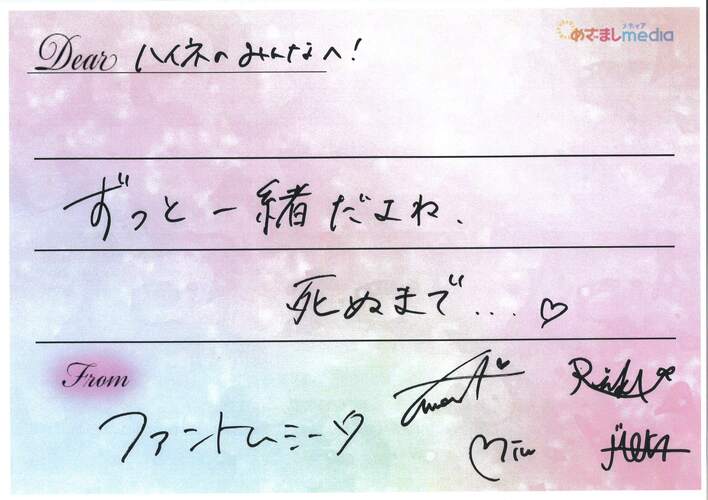 Dear ハイネのみんなへ!
メディア
めざましmedia
ずっと一緒だよね、
死ぬまで...♡
From
ファントムシータ
Miu